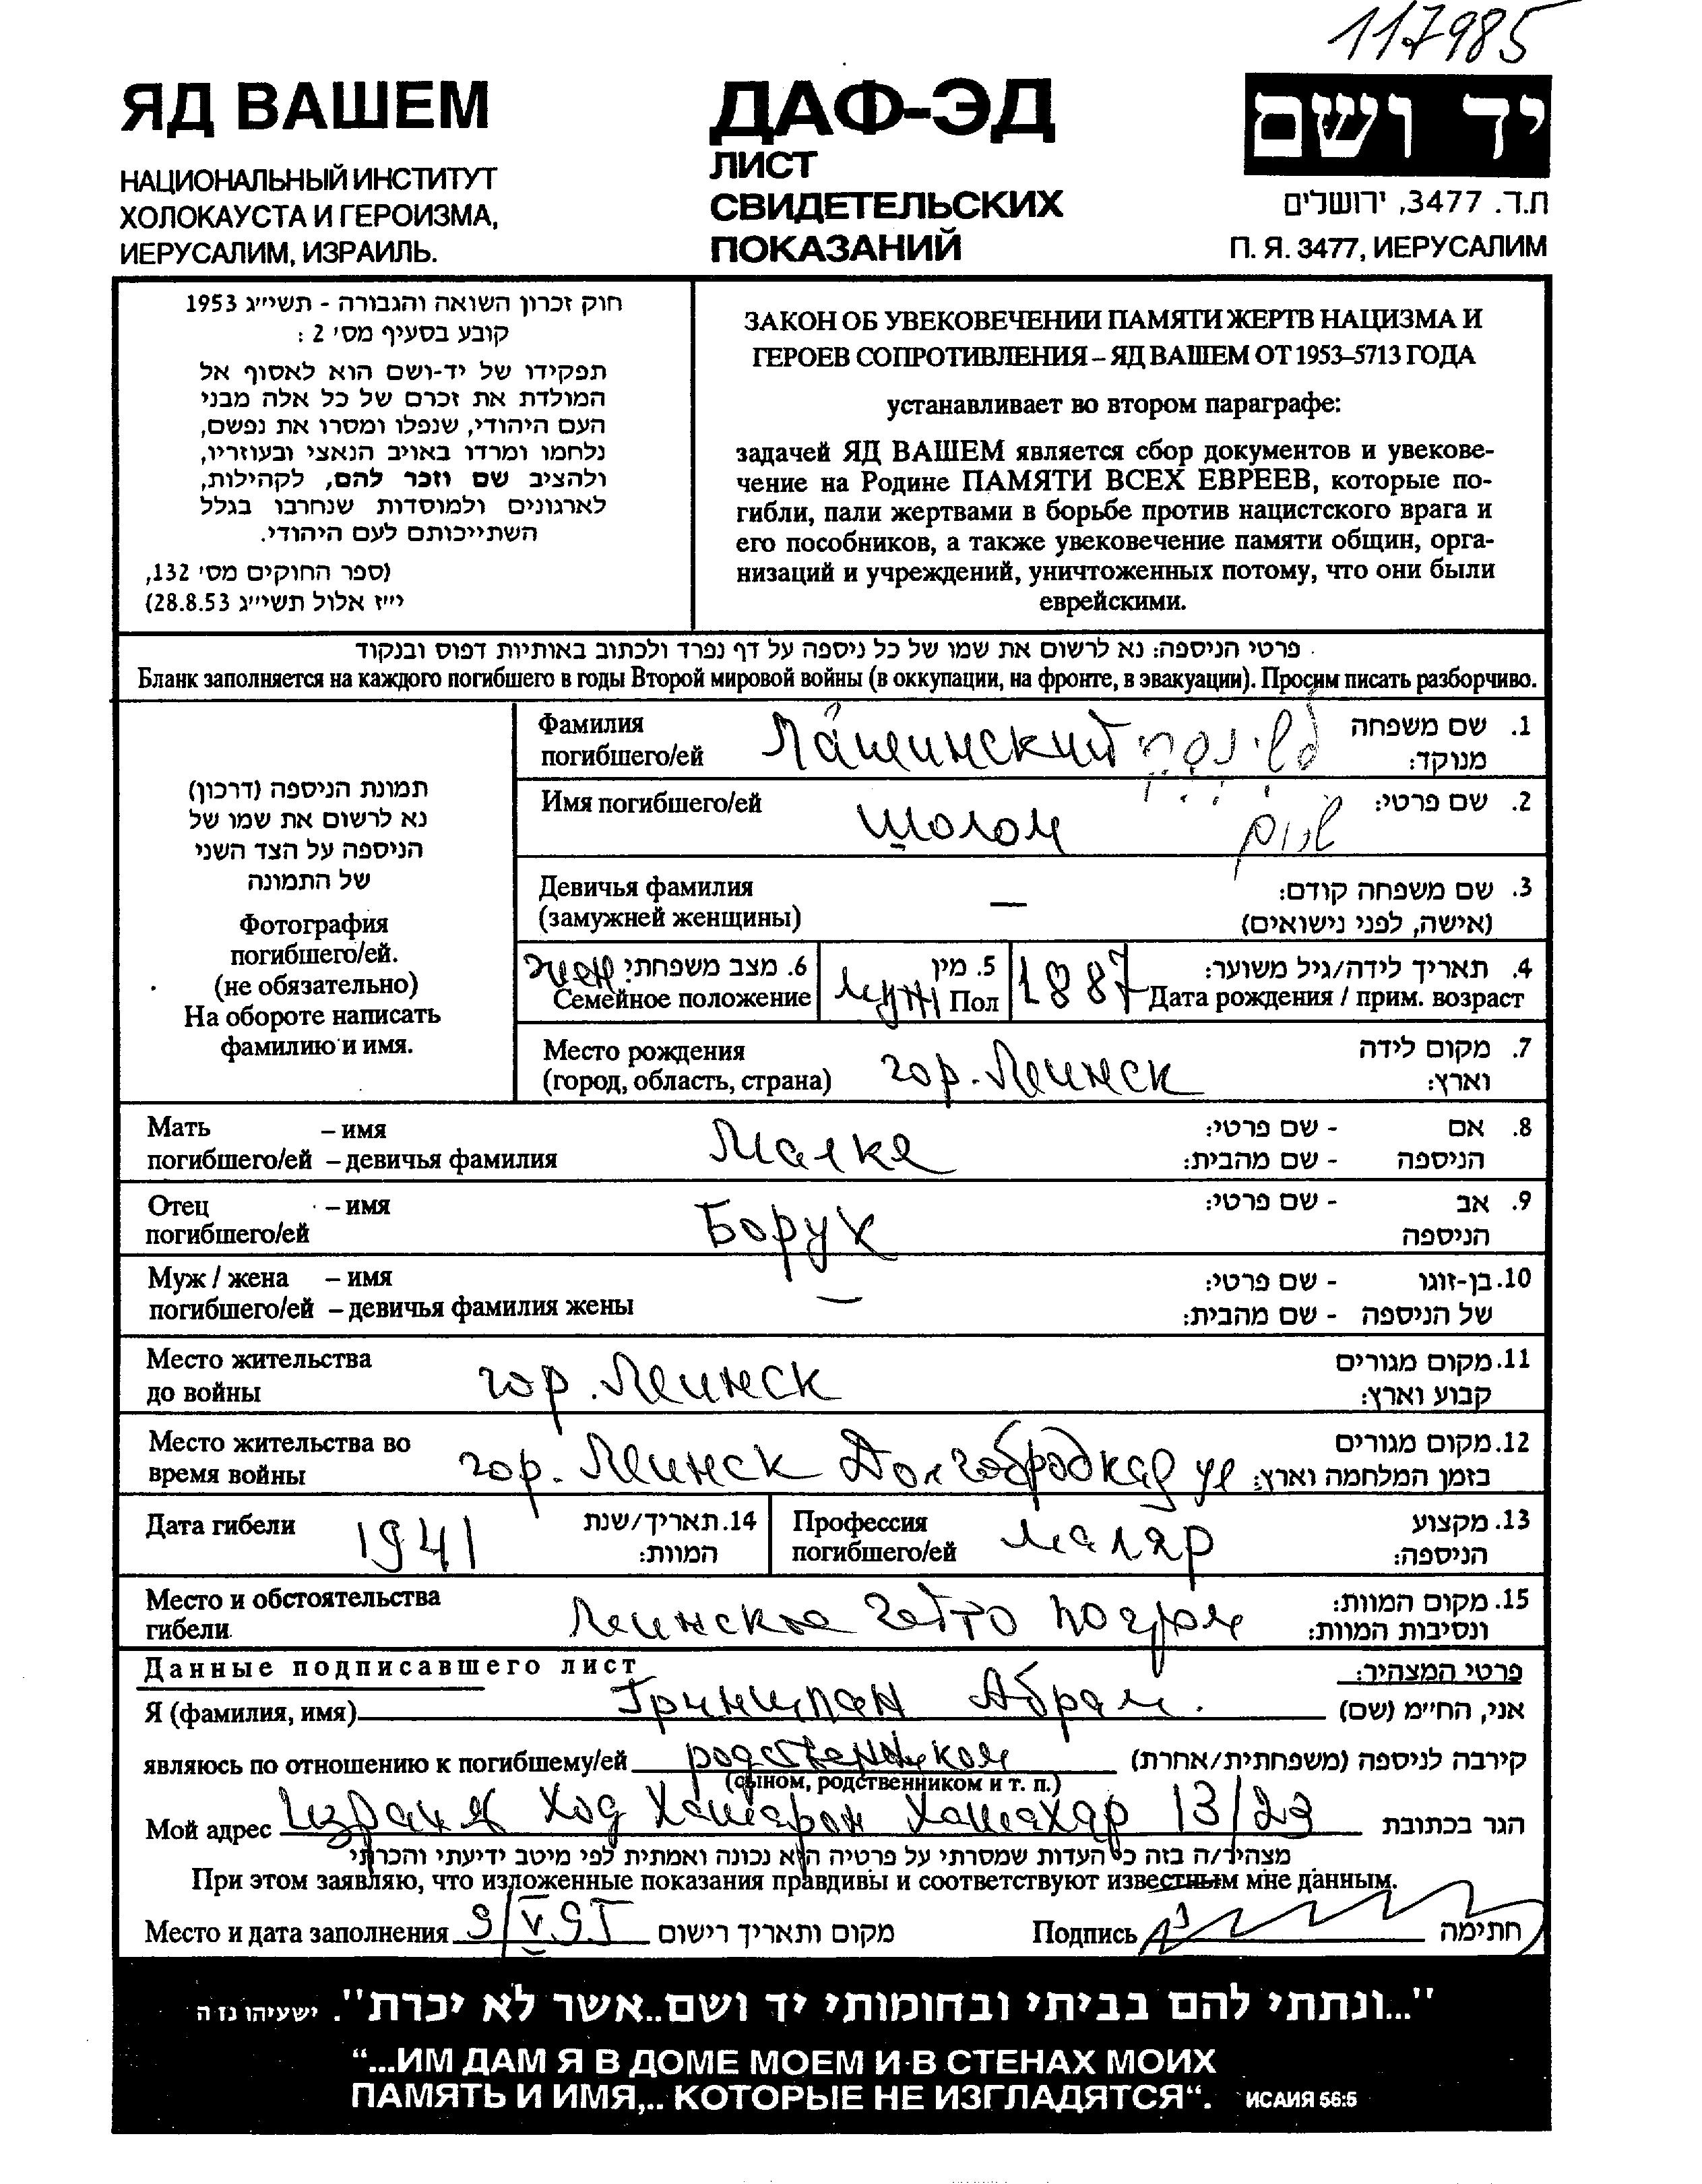 117985
ЯД ВАШЕМ
НАЦИОНАЛЬНЫЙ ИНСТИТУТ
ХОЛОКАУСТА И ГЕРОИЗМА,
ИЕРУСАЛИМ, ИЗРАИЛЬ.
ДАФ-ЭД
ЛИСТ
СВИДЕТЕЛЬСКИХ
ПОКАЗАНИЙ
יד ושם
ת.ד. 3477, ירושלים
П. Я. 3477, ИЕРУСАЛИМ
חוק זכרון השואה והגבורה - תשי״ג 1953
קובע בסעיף מס׳ 2 :
תפקידו של יד-ושם הוא לאסוף אל
המולדת את זכרם של כל אלה מבני
העם היהודי, שנפלו ומסרו את נפשם,
נלחמו ומרדו באויב הנאצי ובעוזריו,
ולהציב שם וזכר להם, לקהילות,
לארגונים ולמוסדות שנחרבו בגלל
השתייכותם לעם היהודי.
(ספר החוקים מס׳ 132,
י״ז אלול תשי״ג 28.8.53)
ЗАКОН ОБ УВЕКОВЕЧЕНИИ ПАМЯТИ ЖЕРТВ НАЦИЗМА И
ГЕРОЕВ СОПРОТИВЛЕНИЯ – ЯД ВАШЕМ ОТ 1953–5713 ГОДА
устанавливает во втором параграфе:
задачей ЯД ВАШЕМ является сбор документов и увекове-
чение на Родине ПАМЯТИ ВСЕХ ЕВРЕЕВ, которые по-
гибли, пали жертвами в борьбе против нацистского врага и
его пособников, а также увековечение памяти общин, орга-
низаций и учреждений, уничтоженных потому, что они были
еврейскими.
פרטי הניספה: נא לרשום את שמו של כל ניספה על דף נפרד ולכתוב באותיות דפוס ובנקוד
Бланк заполняется на каждого погибшего в годы Второй мировой войны (в оккупации, на фронте, в эвакуации). Просим писать разборчиво.
תמונת הניספה (דרכון)
נא לרשום את שמו של
הניספה על הצד השני
של התמונה
Фотография
погибшего/ей.
(не обязательно)
На обороте написать
фамилию и имя.
Фамилия Лашинский לשינסקי 1. שם משפחה
погибшего/ей מנוקד:
Имя погибшего/ей Шолом שלום 2. שם פרטי:
Девичья фамилия — 3. שם משפחה קודם:
(замужней женщины) (אישה, לפני נישואים)
4. תאריך לידה/גיל משוער: 1887
Дата рождения / прим. возраст
5. מין муж
Пол
6. מצב משפחתי: жен
Семейное положение
Место рождения гор. Минск 7. מקום לידה
(город, область, страна) וארץ:
Мать – имя Малка 8. אם - שם פרטי:
погибшего/ей – девичья фамилия הניספה - שם מהבית:
Отец – имя Борух 9. אב - שם פרטי:
погибшего/ей הניספה
Муж / жена – имя — 10. בן-זוגו - שם פרטי:
погибшего/ей – девичья фамилия жены של הניספה - שם מהבית:
Место жительства гор. Минск 11. מקום מגורים
до войны קבוע וארץ:
Место жительства во гор. Минск Долгобродкая ул 12. מקום מגורים
время войны בזמן המלחמה וארץ:
Дата гибели 1941 14. תאריך/שנת
המוות:
Профессия маляр 13. מקצוע
погибшего/ей הניספה:
Место и обстоятельства Минское гетто погром 15. מקום המוות:
гибели ונסיבות המוות:
Данные подписавшего лист פרטי המצהיר:
Я (фамилия, имя) Гриншпан Абрам. אני, החי״מ (שם)
являюсь по отношению к погибшему/ей родственником קירבה לניספה (משפחתית/אחרת)
(сыном, родственником и т. п.)
Мой адрес Израиль Ход Хашарон Хашахар 13/23 הגר בכתובת
מצהיר/ה בזה כי העדות שמסרתי על פרטיה היא נכונה ואמתית לפי מיטב ידיעתי והכרתי
При этом заявляю, что изложенные показания правдивы и соответствуют известным мне данным.
Место и дата заполнения 9/V 95 מקום ותאריך רישום Подпись חתימה
"...ונתתי להם בביתי ובחומותי יד ושם..אשר לא יכרת". ישעיהו נז ה
“...ИМ ДАМ Я В ДОМЕ МОЕМ И В СТЕНАХ МОИХ
ПАМЯТЬ И ИМЯ,.. КОТОРЫЕ НЕ ИЗГЛАДЯТСЯ“. ИСАИЯ 56:5